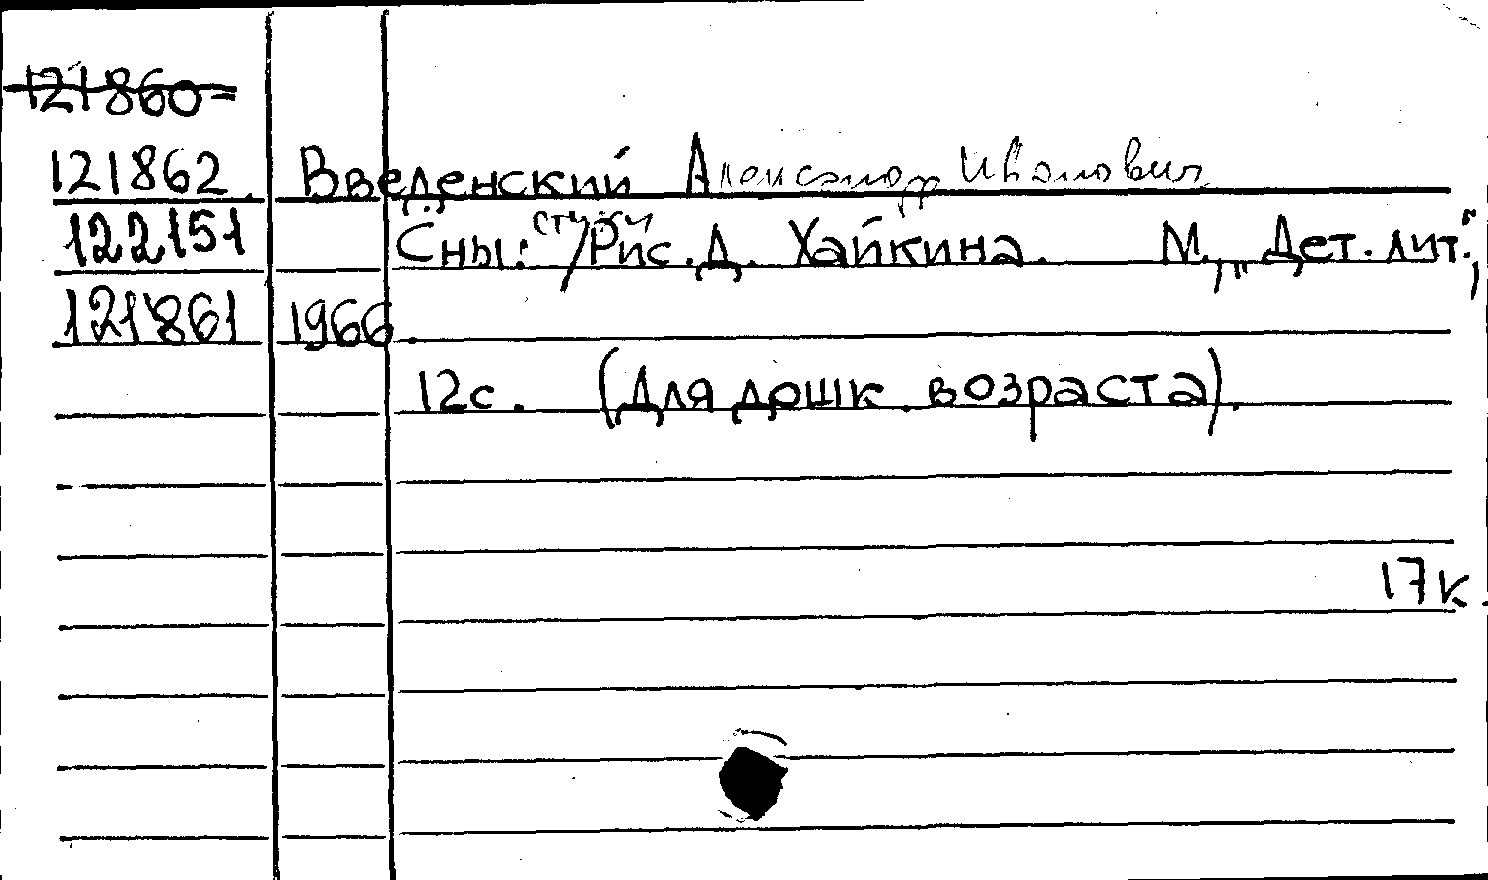 121860-
121862. Введенский Александр Иванович
122151 Сны: стихи /Рис. Д. Хайкина. М., „Дет. лит.",
121861 1966.
12с. (Для дошк. возраста).
17к.